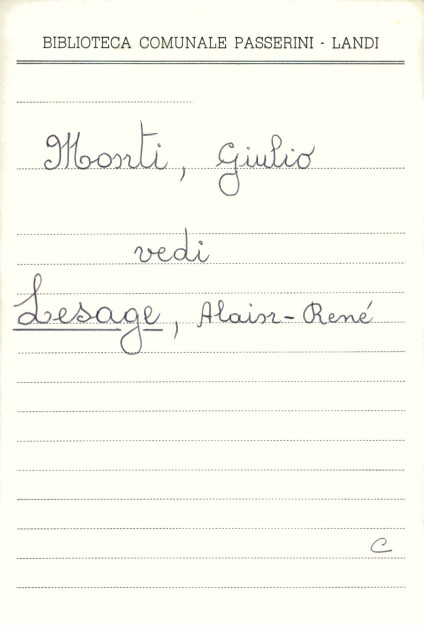 BIBLIOTECA COMUNALE PASSERINI - LANDI
Monti, Giulio
vedi
Lesage, Alain-René
C